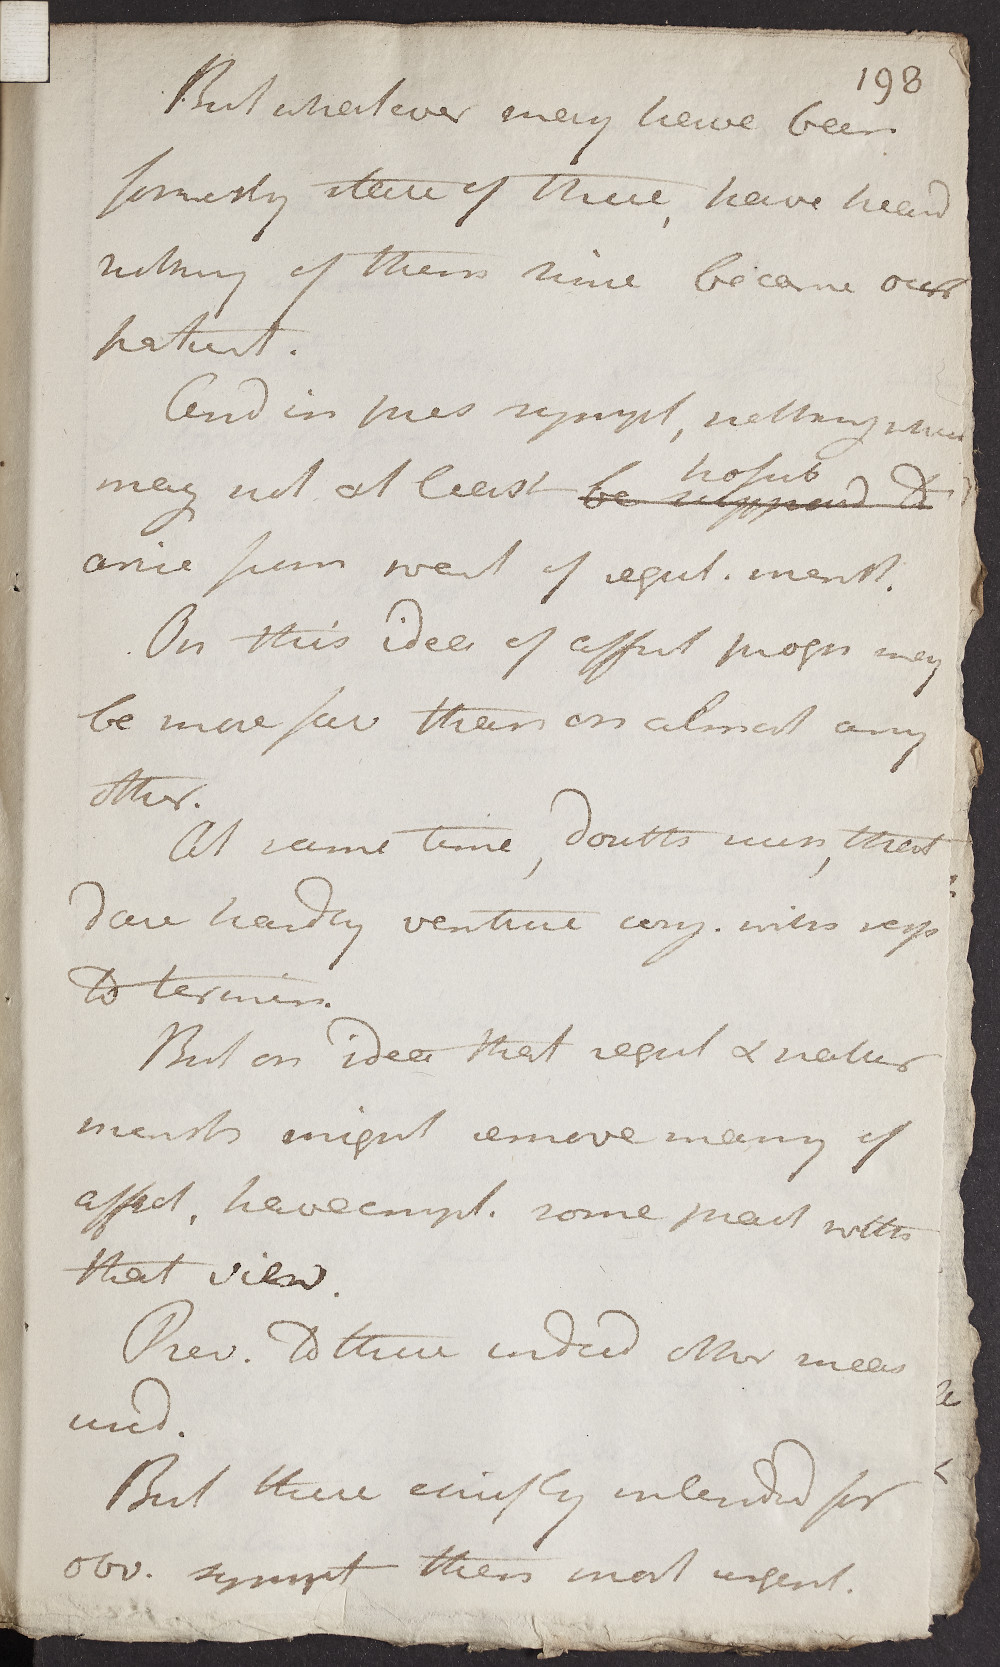 198
But whatever may have been
formerly state of these, have heard
nothing of them since became our
patient.
And in pres sympt, nothing which
may not at least be supposd to
arise from want of regul. menst.
On this idea of affect progn may
be more fav than on almost any
other.
At same time, doubts such, that
dare hardly venture any. with resp
to termin.
But on idea that regul & natur
menst might remove many of
affect, have empl. some pract with
that view.
Prev. to these indeed other meas
used.
But these chiefly intended for
obv. sympt then most urgent.